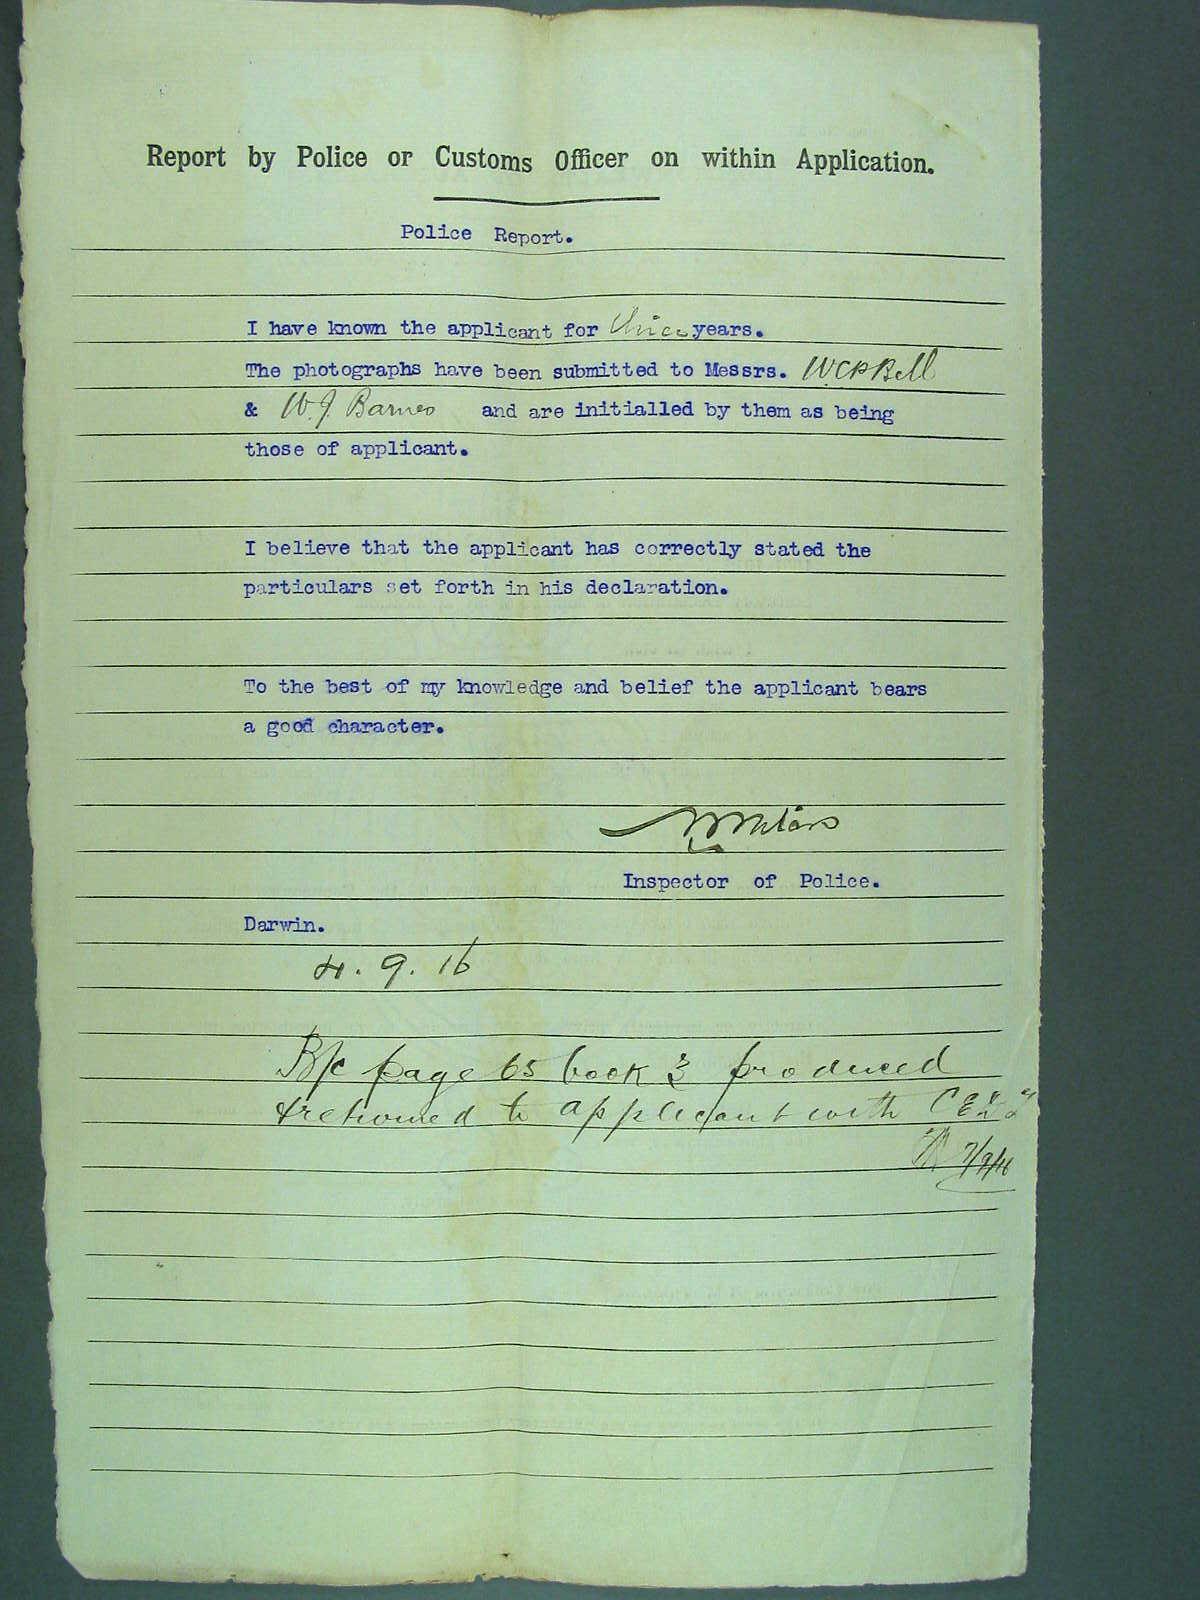 Report by Police or Customs Officer on within Application.
Police Report.
I have known the applicant for three years.
The photographs have been submitted to Messrs. W.C.P. Bell
& W. J. Barnes and are initialled by them as being
those of applicant.
I believe that the applicant has correctly stated the
particulars set forth in his declaration.
To the best of my knowledge and belief the applicant bears
a good character.
Inspector of Police.
Darwin.
4. 9. 16
B/c page 65 book 3 produced
& returned to applicant with C E D T
7/9/16